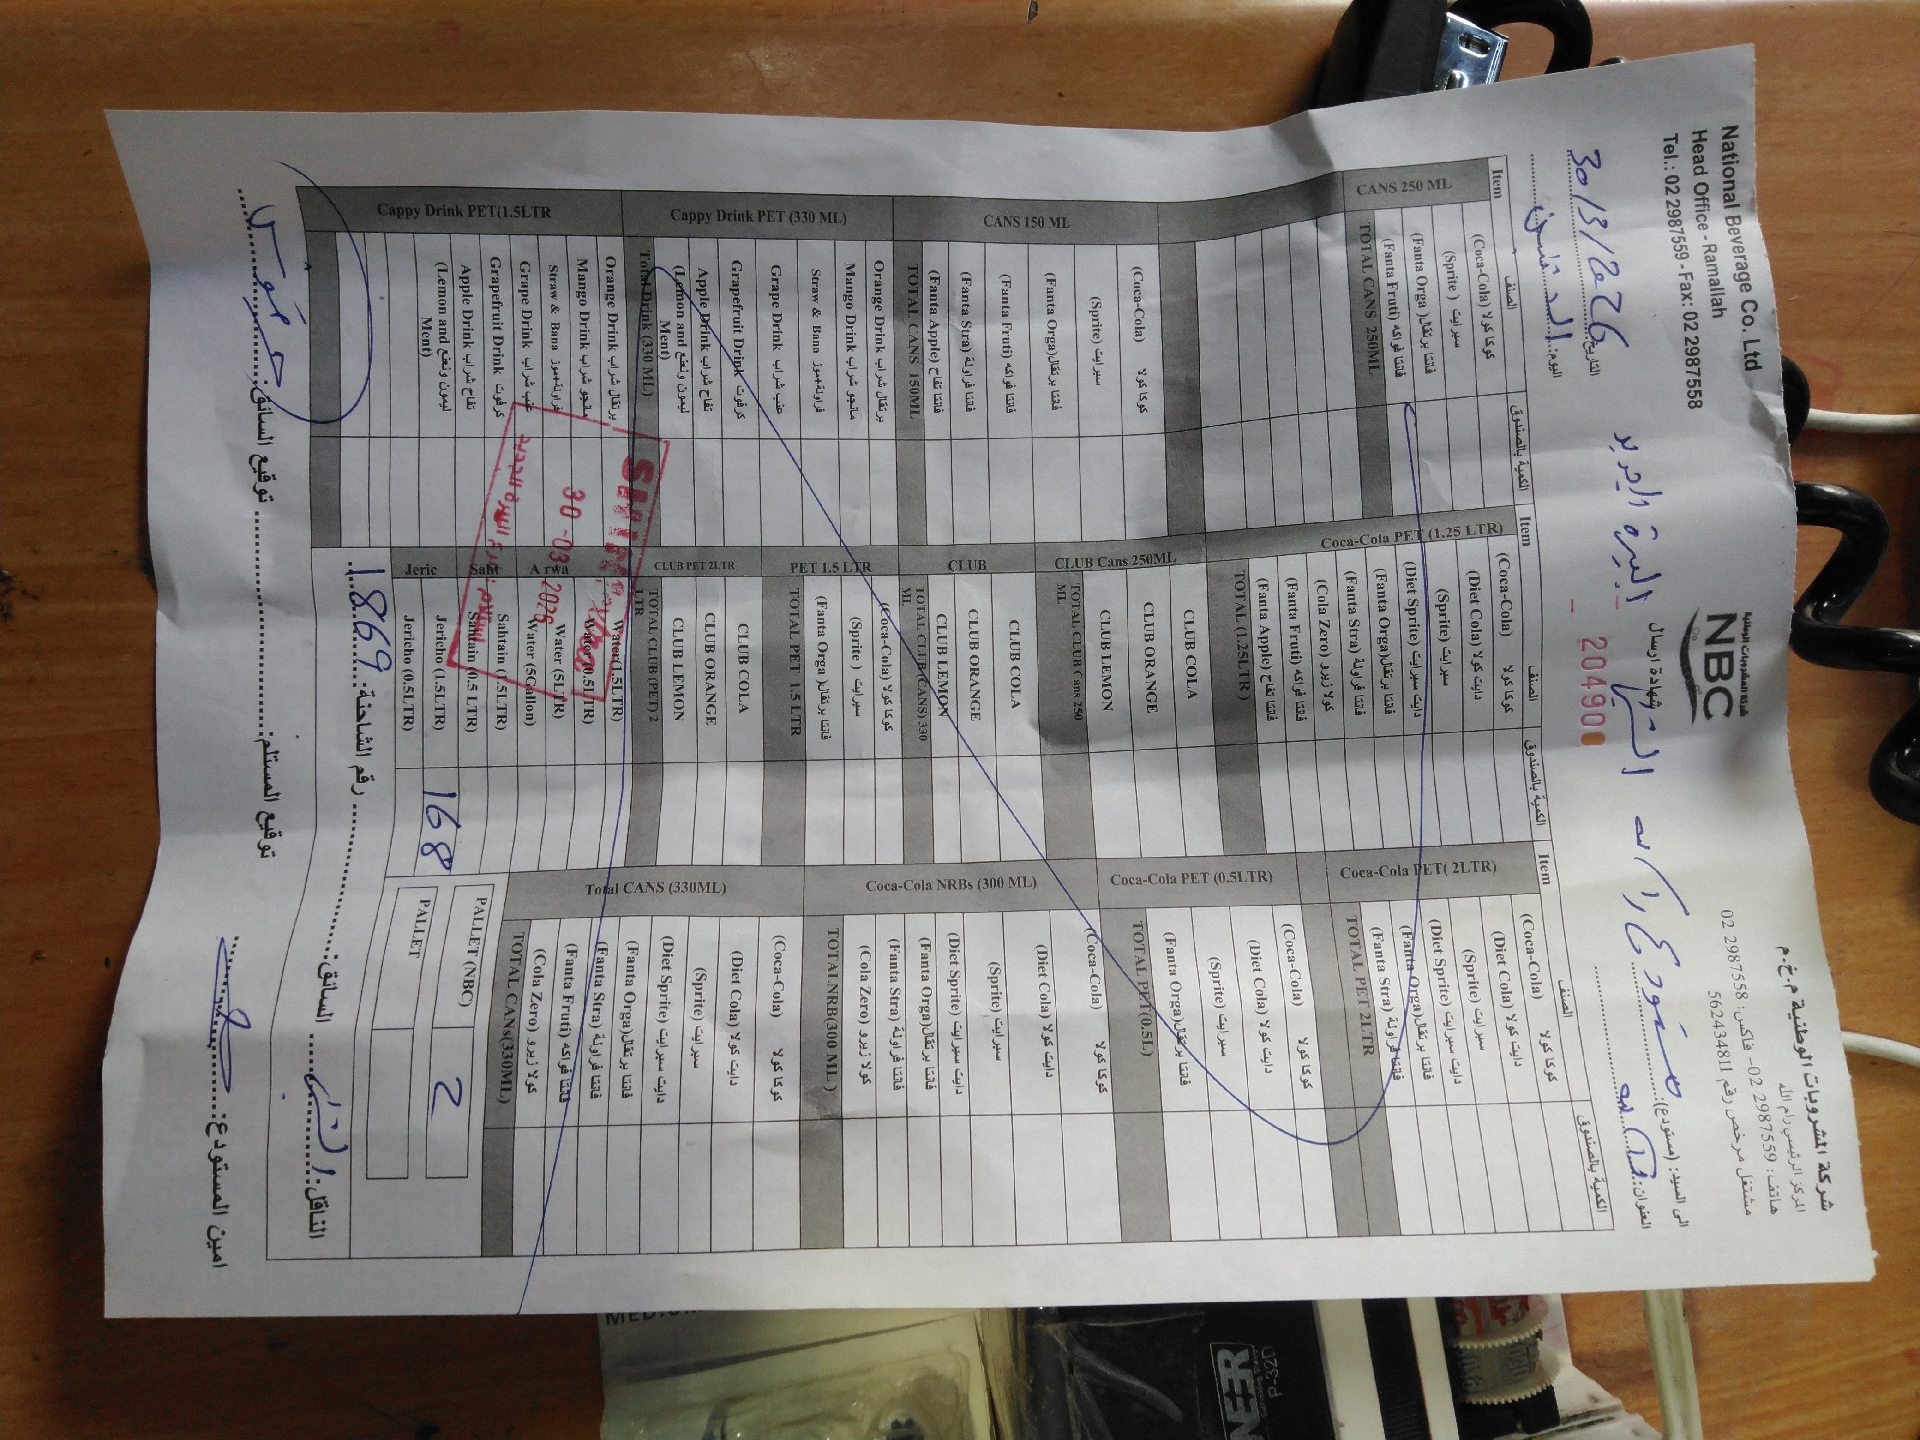 National Beverage Co. Ltd
Head Office - Ramallah
Tel.: 02 2987559 -Fax: 02 2987558
شركة المشروبات الوطنية
NBC
شركة المشروبات الوطنية م.خ.م
المركز الرئيسي رام الله
هاتف: 2987559 02 - فاكس: 2987558 02
مشتغل مرخص رقم 562434811
التاريخ: 30/3/2026
اليوم:
شهادة ارسال
- 204900
الى السيد: (مستودع):
العنوان:
Item الصنف الكمية بالصندوق
CANS 250 ML
كوكا كولا (Coca-Cola)
سبرايت (Sprite )
فانتا برتقال (Fanta Orga)
فانتا فواكه (Fanta Fruti)
TOTAL CANS 250ML
CANS 150 ML
كوكا كولا (Coca-Cola)
سبرايت (Sprite)
فانتا برتقال(Fanta Orga)
فانتا فواكه (Fanta Fruti)
فانتا فراولة (Fanta Stra)
فانتا تفاح (Fanta Apple)
TOTAL CANS 150ML
Cappy Drink PET (330 ML)
برتقال شراب Orange Drink
مانجو شراب Mango Drink
فراولة+موز Straw & Bana
عنب شراب Grape Drink
كرفوت Grapefruit Drink
تفاح شراب Apple Drink
ليمون ونعنع (Lemon and Ment)
Total Drink (330 ML)
Cappy Drink PET(1.5LTR
برتقال شراب Orange Drink
مانجو شراب Mango Drink
فراولة+موز Straw & Bana
عنب شراب Grape Drink
كرفوت Grapefruit Drink
تفاح شراب Apple Drink
ليمون ونعنع (Lemon and Ment)
Item الصنف الكمية بالصندوق
Coca-Cola PET (1.25 LTR)
كوكا كولا (Coca-Cola)
دايت كولا (Diet Cola)
سبرايت (Sprite)
دايت سبرايت (Diet Sprite)
فانتا برتقال(Fanta Orga)
فانتا فراولة (Fanta Stra)
كولا زيرو (Cola Zero)
فانتا فواكه (Fanta Fruti)
فانتا تفاح (Fanta Apple)
TOTAL (1.25LTR )
CLUB Cans 250ML
CLUB COLA
CLUB ORANGE
CLUB LEMON
TOTAL CLUB Cans 250 ML
CLUB
CLUB COLA
CLUB ORANGE
CLUB LEMON
TOTAL CLUB (CANS) 330 ML
PET 1.5 LTR
كوكا كولا (Coca-Cola)
سبرايت (Sprite )
فانتا برتقال( Fanta Orga)
TOTAL PET 1.5 LTR
CLUB PET 2LTR
CLUB COLA
CLUB ORANGE
CLUB LEMON
TOTAL CLUB (PET) 2 LTR
Arwa
Water(1.5LTR)
Water(0.5LTR)
Water (5LTR)
Water (5Gallon)
Saht
Sahtain (1.5LTR)
Sahtain (0.5 LTR)
Jeric
Jericho (1.5LTR) 168
Jericho (0.5LTR)
30 -03- 2026
Item الصنف الكمية بالصندوق
Coca-Cola PET( 2LTR)
كوكا كولا (Coca-Cola)
دايت كولا (Diet Cola)
سبرايت (Sprite)
دايت سبرايت (Diet Sprite)
فانتا برتقال(Fanta Orga)
فانتا فراولة (Fanta Stra)
TOTAL PET 2LTR
Coca-Cola PET (0.5LTR)
كوكا كولا (Coca-Cola)
دايت كولا (Diet Cola)
سبرايت (Sprite)
فانتا برتقال(Fanta Orga)
TOTAL PET(0.5L)
Coca-Cola NRBs (300 ML)
كوكا كولا (Coca-Cola)
دايت كولا (Diet Cola)
سبرايت (Sprite)
دايت سبرايت (Diet Sprite)
فانتا برتقال(Fanta Orga)
فانتا فراولة (Fanta Stra)
كولا زيرو (Cola Zero)
TOTAL NRB(300 ML )
Total CANS (330ML)
كوكا كولا (Coca-Cola)
دايت كولا (Diet Cola)
سبرايت (Sprite)
دايت سبرايت (Diet Sprite)
فانتا برتقال(Fanta Orga)
فانتا فراولة (Fanta Stra)
فانتا فواكه (Fanta Fruti)
كولا زيرو (Cola Zero)
TOTAL CANs(330ML)
PALLET (NBC) 2
PALLET
الناقل: السائق: رقم الشاحنة: 1869
امين المستودع: توقيع المستلم: توقيع السائق:
P-32D